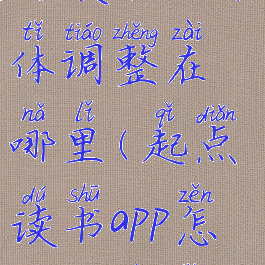 tǐ tiáo zhěng zài
体调整在
nǎ lǐ qǐ diǎn
哪里(起点
dú shū zěn
读书app怎